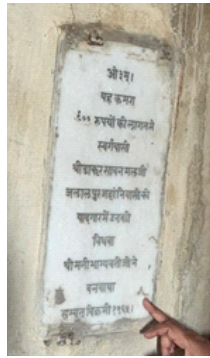 ओ३म्।
यह कमरा
६०० रुपयों की लागत से
स्वर्गवासी
श्री ठाकुर साधन मल जी
जलालपुर जट्टां निवासी की
यादगार में उनकी
विधवा
श्रीमती भाग्यवती जी ने
बनवाया
सम्वत् विक्रमी १९६५।